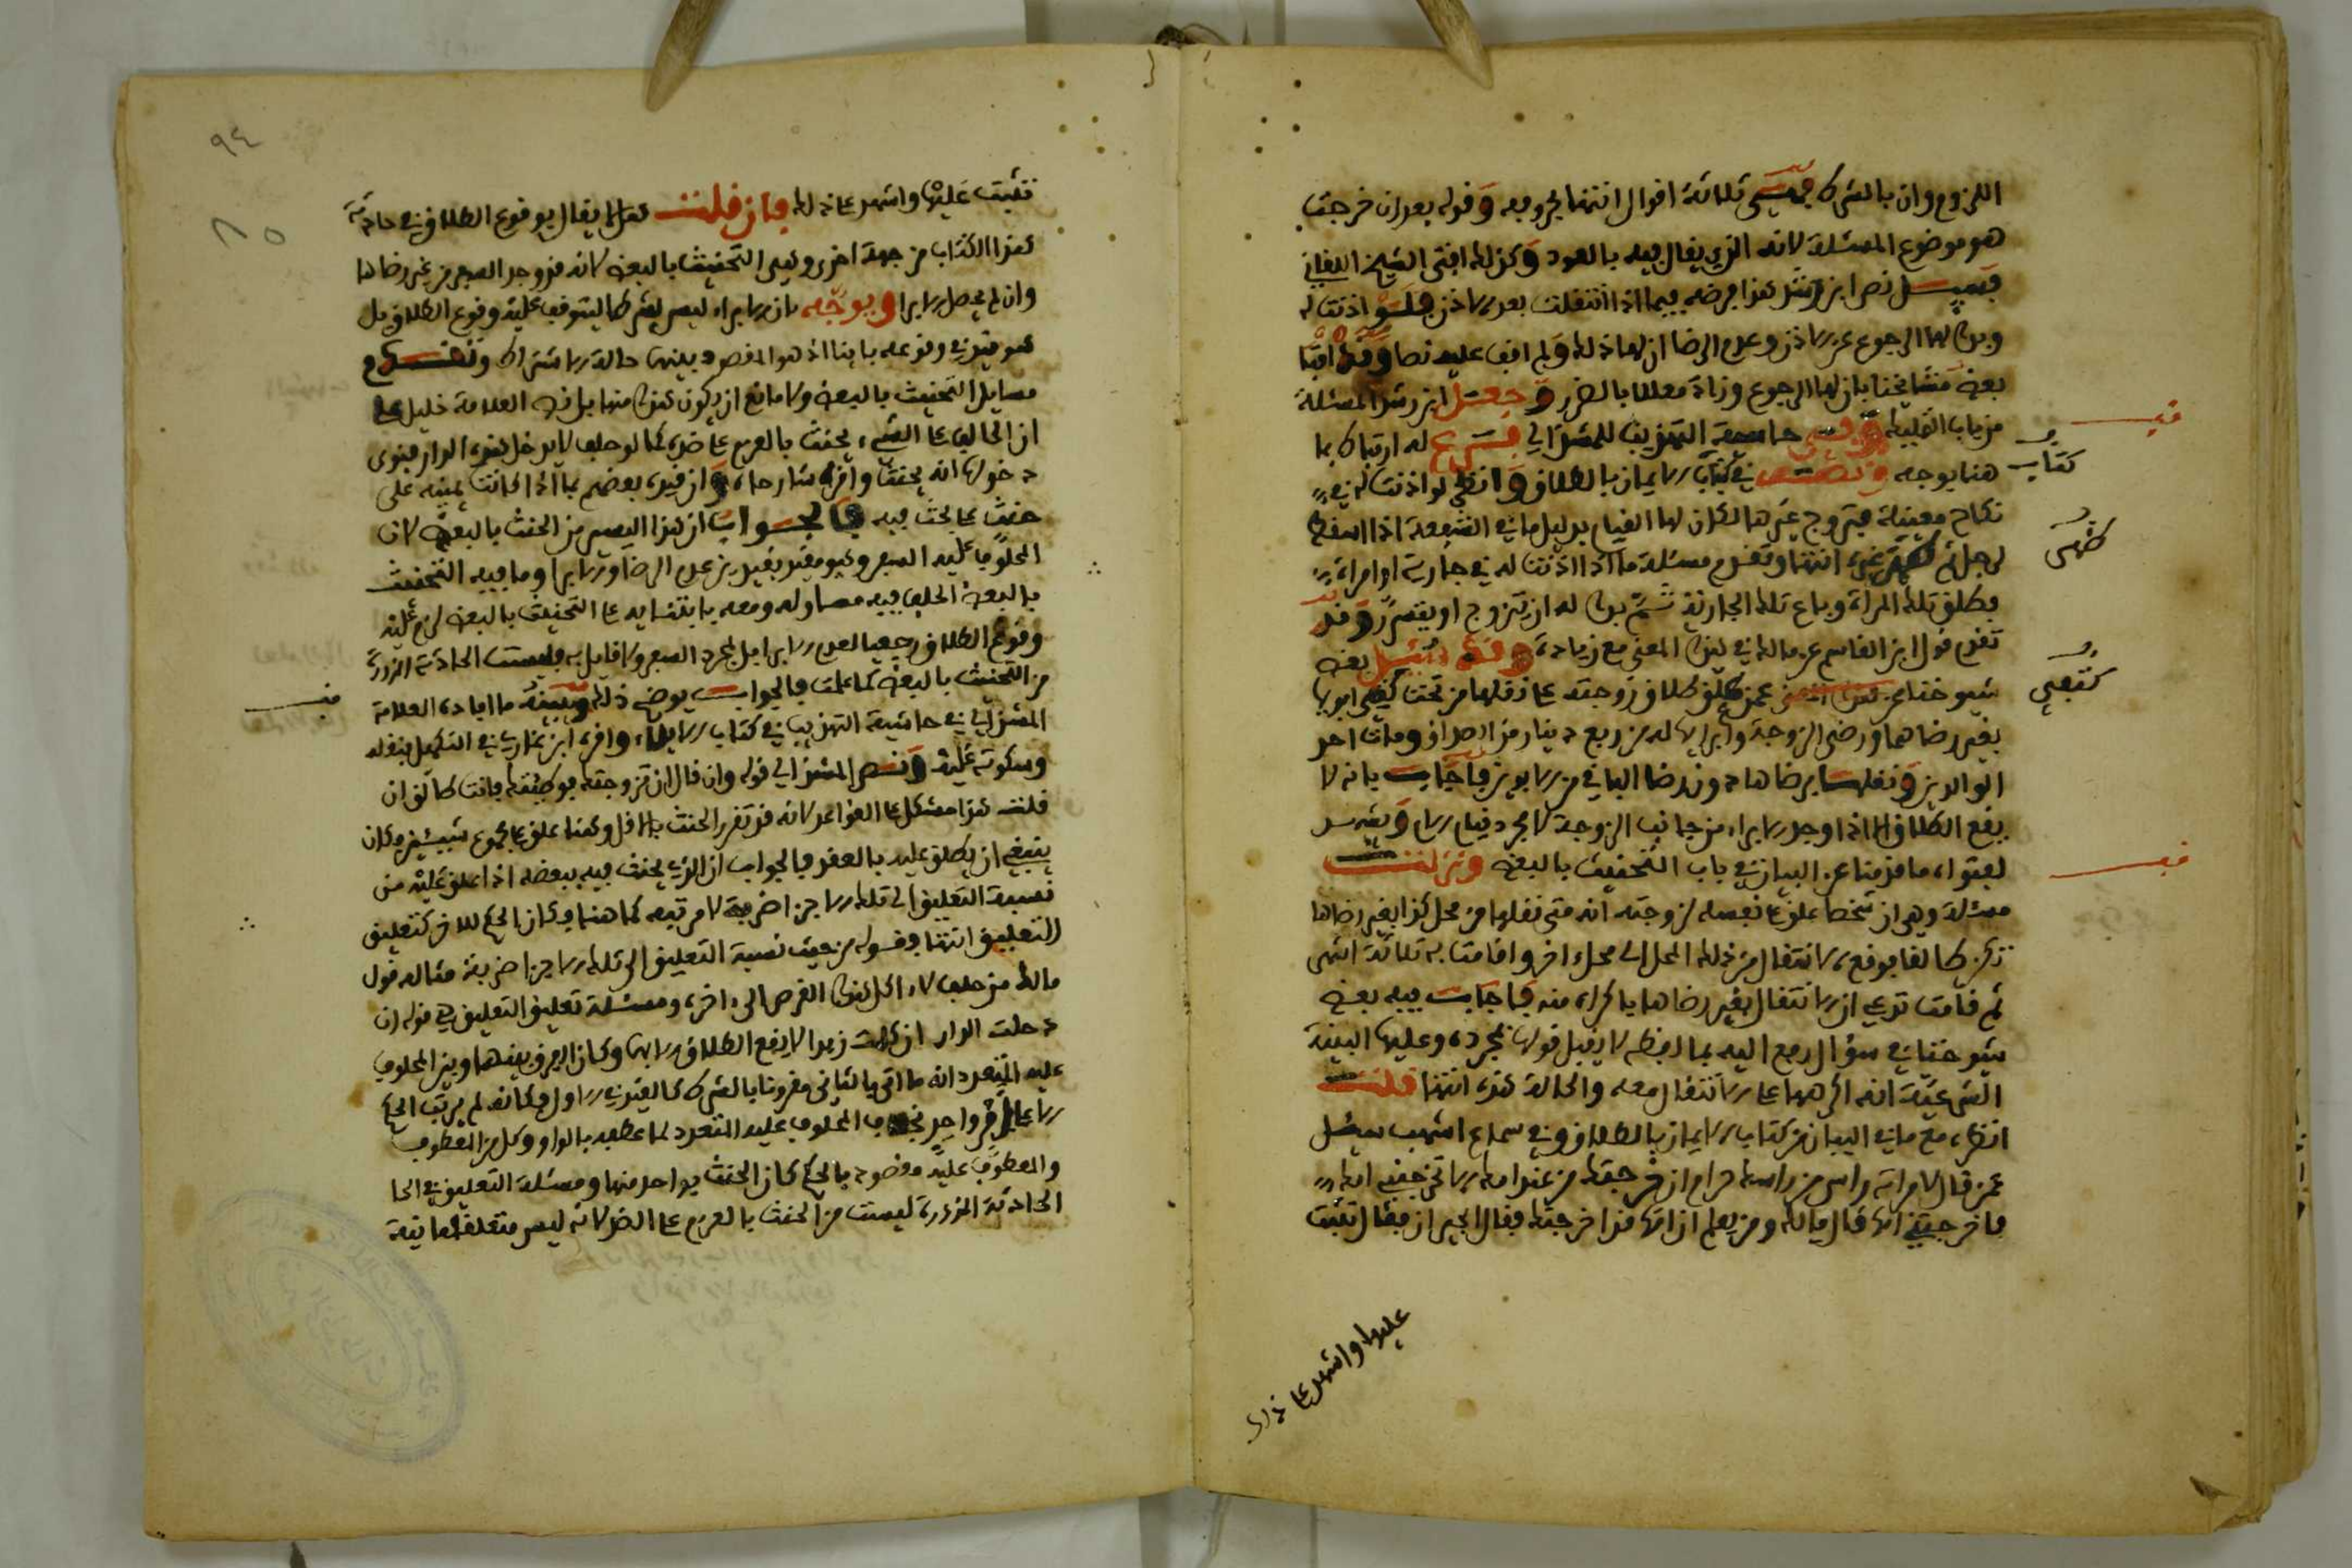 اللزوم وان بالشرك ثلاثة اقوال انتها بحروفه وقوله بعد ان خرجت
هو موضوع المسئلة لانه الذي يقال فيه بالعود وكذلك افتى الشيخ اللقاني
نص ابن رشد هذا فرضه فيما اذا انتقلت بعد الاذن فلو اذنت له
وبدا لها الرجوع عن الاذن وعدم الرضا ان لها ذلك ولم اقف عليه نصا وقد افتا
بعض مشايخنا بان لها الرجوع وزاده معللا بالضرر وجعل ابن رشد المسئلة
من باب التمليك وفي حاشية التهذيب للمشذالي له ارتباك بما
هنا يوجه في كتاب الايمان بالطلاق وانظر لو اذنت له في
نكاح معينة فتزوج غيرها لكان لها القيام بدليل ما في الشفعة اذا اسقط
لرجل ثم ظهر غيره انتها وتقدم مسئلة ما اذا اذنت له في جارية او امراة
فطلق تلك المراة وباع تلك الجارية ثم بدا له ان يتزوج او يتسرر وقد
تقدم قول ابن القاسم عن مالك في هذا المعنى مع زيادة وقد سئل بعض
شيوخنا عمن علق طلاق زوجته على نقلها من تحت كنفي ابويها
بغير رضاهما ورضى الزوجة وابرايها له من ربع دينار من الصداق ومات احد
الوالدين ونقلها برضاها دون رضا الباقي من الابوين فاجاب بانه لا
يقع الطلاق الا اذا وجد الابراء من جانب الزوجة لا مجرد
لفتواه ما قدمنا عن البيان في باب التحنيث بالبعض ونزلت
مسئلة وهي ان شخصا علق على نفسه لزوجته انه متى نقلها من محل كذا بغير رضاها
تكن طالقا فوقع الانتقال من ذلك المحل الى محل اخر واقامت به ثلاثة اشهر
ثم قامت تدعي ان الانتقال بغير رضاها باكراه منه فاجاب فيه بعض
شيوخنا في سؤال رفع اليه بما لفظه لا يقبل قولها بمجرده وعليها البينة
الشرعية انه اكرهها على الانتقال معه والحالة هذه انتها قلت
انظره مع ما في البيان من كتاب الايمان بالطلاق وفي سماع اشهب سئل
عمن قال لامراته راسي من راسك حرام ان خرجت من عند امك الا تخرجني امك
فاخرجتني امها قال مالك ومن يعلم ان امها قد اخرجتها فقال الجيران فقال تثبت
كتاب
ظهر
كنفي
عليها واشهد على ذلك
٩٤
تثبت عليها واشهد على ذلك فان قلت هلا يقال بوقوع الطلاق في حادثة
هذا الكتاب من جهة اخرى وهي التحنيث بالبعض لانه قد وجد السفر من غير رضاها
وان لم يحصل الابرا ويوجه بان الابراء ليس بشرط ليتوقف عليه وقوع الطلاق بل
هو قيد في وقوعه باينا اذ هو المقصود بينهما حالة الاشتراك وتقدم
مسايل التحنيث بالبعض ولا مانع ان يكون هذا منها بل في العلامة خليل على
ان الحالف على الشيء يحنث بالعزم على ضده كما لو حلف لا يدخل هذه الدار فنوى
دخولها انه يحنث واقره شارحاه وان قيده بعضهم بما اذا كانت يمينه على
حنث كما لحث فيه فالجواب ان هذا ليس من الحنث بالبعض لان
المحلوف عليه السفر وهو مقيد بقيدين عدم الرضا والابرا وما فيه التحنيث
بالبعض الحلف فيه مساو له ومعه بابتنايه على التحنيث بالبعض لزم عليه
وقوع الطلاق رجعيا لعدم الابرا بل بمجرد السفر ولا قايل به فليست الحادثة المذكورة
من التحنيث بالبعض كما علمت فالجواب يوضح ذلك ويبينه ما افاده العلامة
المشذالي في حاشية التهذيب في كتاب الايلاء واقره ابن غازي في التكميل بنقله
وسكوته عليه ونص المشذالي قوله وان قال ان تزوجتك فوطيتك فانت طالق ان
قلت هذا مشكل على القواعد لانه قد تقرر الحنث بالاقل وهنا علق بمجموع شيئين فكان
ينبغي ان يطلق عليه بالعقد فالجواب ان الذي يحنث فيه ببعضه اذا علق عليه من
نسبة التعليق الى تلك الاجزا ضربة لا مرتبة كما هنا فكان الحكم للاخر كتعليق
التعليق انتها وقوله من حيث نسبة التعليق الى تلك الاجزا ضربة مثاله قول
مالك من حلف لا اكل هذا القرص الى اخره ومسئلة تعليق التعليق هي قوله ان
دخلت الدار ان كلمت زيدا لا يقع الطلاق الا بهما وكان الفرق بينهما وبين المحلوف
عليه المتعدد انه ما اتى بالثاني مقرونا بالشرط كالقيد في الاول فكانه لم يرتب الحكم
الا على امر واحد بخلاف المحلوف عليه المتعدد لما عطف بالواو وكل من المعطوف
والمعطوف عليه مقصود بالحكم كان الحنث بواحد منها ومسئلة التعليق في الحا
الحادثة المذكورة ليست من الحنث بالعزم على الضد لانه ليس متعلقه ما نيته